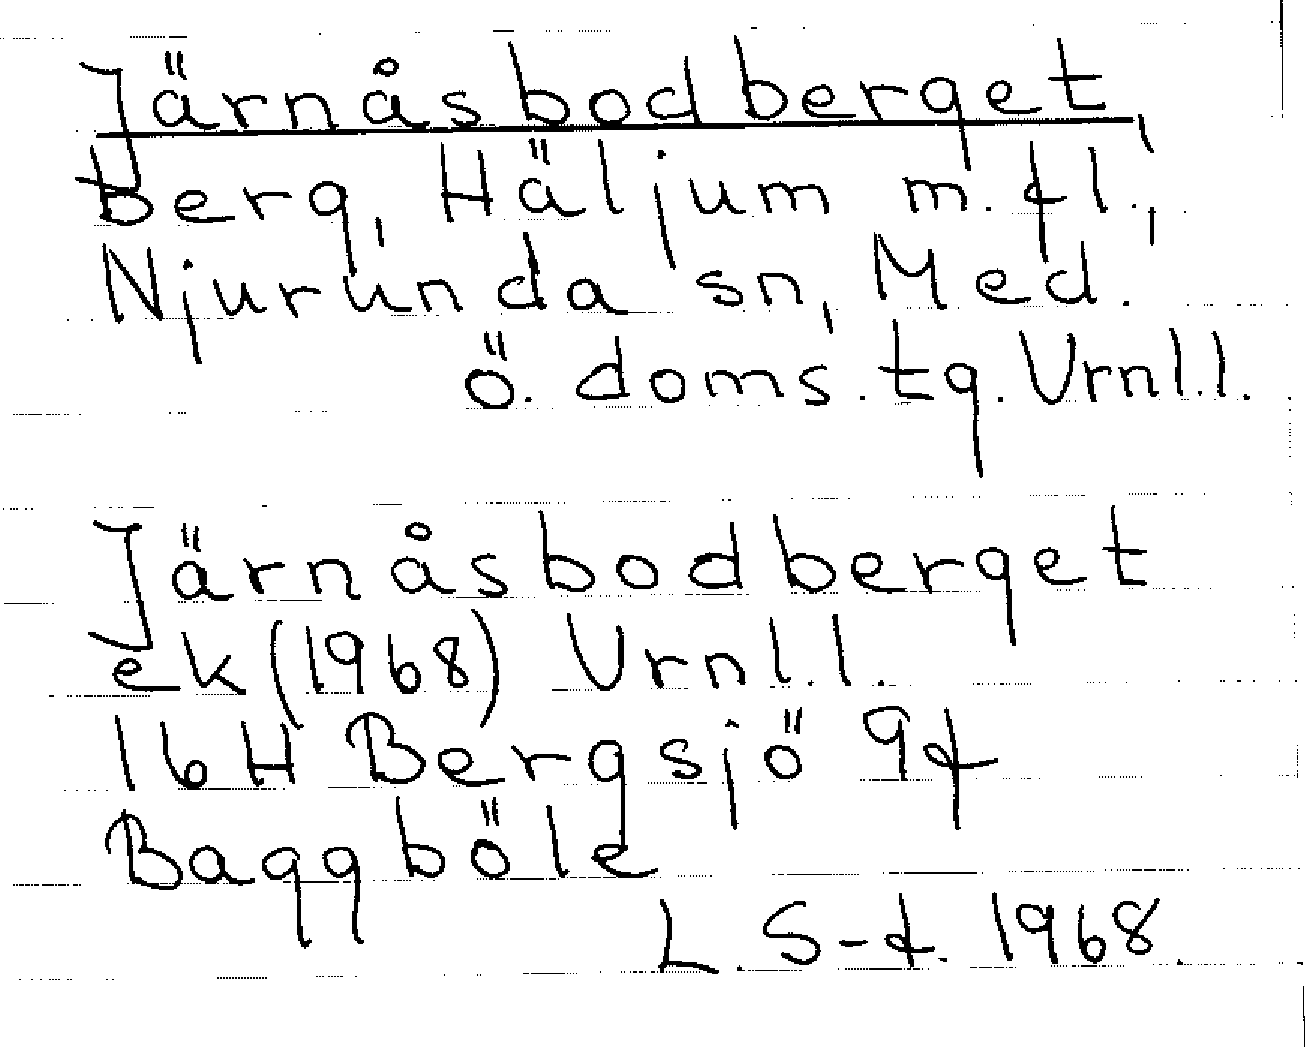 Järnåsbodberget,
berg, Häljum m.fl.,
Njurunda sn, Med.
ö. doms. tg. Vrnl.l.
Järnåsbodberget
ek (1968) Vrnl.l.
16H Bergsjö 9f
Baggböle
L. S-f. 1968.